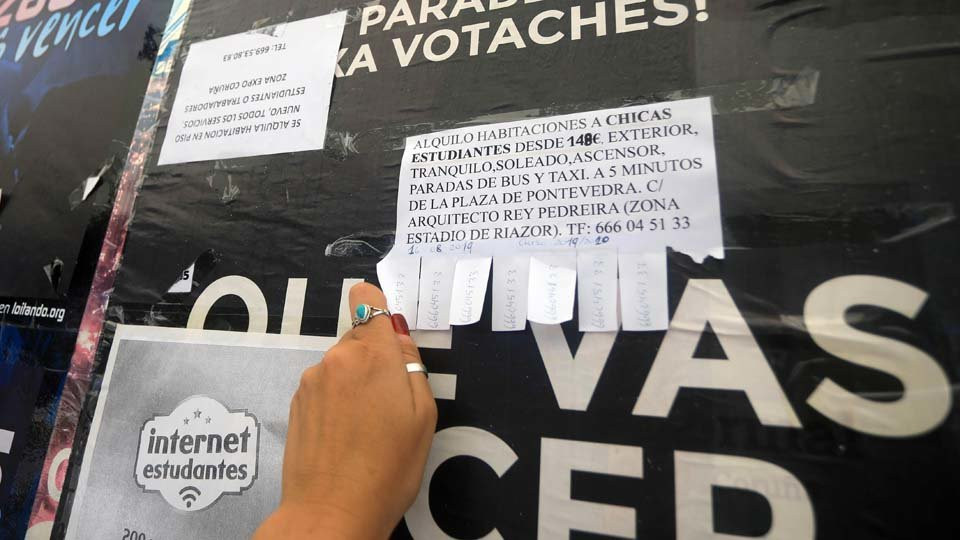 vencer
PARABE
XA VOTACHES!
SE ALQUILA HABITACION EN PISO
NUEVO, TODOS LOS SERVICIOS.
ESTUDIANTES O TRABAJADORES
ZONA EXPO CORUÑA
TEL: 669.53.80.83
ALQUILO HABITACIONES A CHICAS
ESTUDIANTES DESDE 148€. EXTERIOR,
TRANQUILO,SOLEADO,ASCENSOR,
PARADAS DE BUS Y TAXI. A 5 MINUTOS
DE LA PLAZA DE PONTEVEDRA. C/
ARQUITECTO REY PEDREIRA (ZONA
ESTADIO DE RIAZOR). TF: 666 04 51 33
16 08 2019 Curso 2019/2020
666045133
666045133
666045133
666045133
666045133
666045133
666045133
en loitando.org
QUE VAS
CER
internet
estudantes